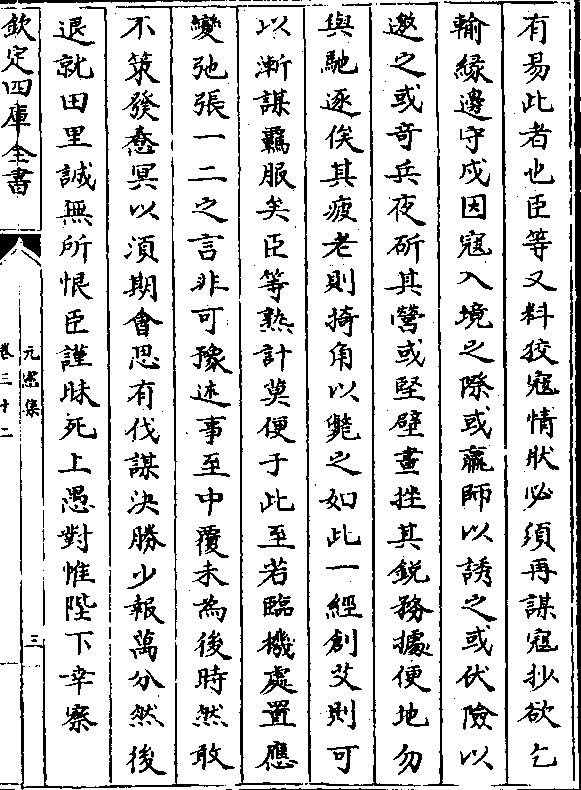 有易此者也臣等又料狡寇情狀必須再謀寇抄欲乞
輸緣邊守戍因寇入境之際或羸師以誘之或伏險以
邀之或奇兵夜斫其營或堅壁晝挫其銳務據便地勿
與馳逐俟其疲老則掎角以斃之如此一經創艾則可
以漸謀羈服矣臣等熟計莫便于此至若臨機處置應
變弛張一二之言非可豫述事至中覆未為後時然敢
不策發蠢冥以湏期會思有伐謀決勝少報萬分然後
退就田里誠無所恨臣謹昧死上愚對惟陛下幸察
欽定四庫全書
元憲集
卷三十二
三